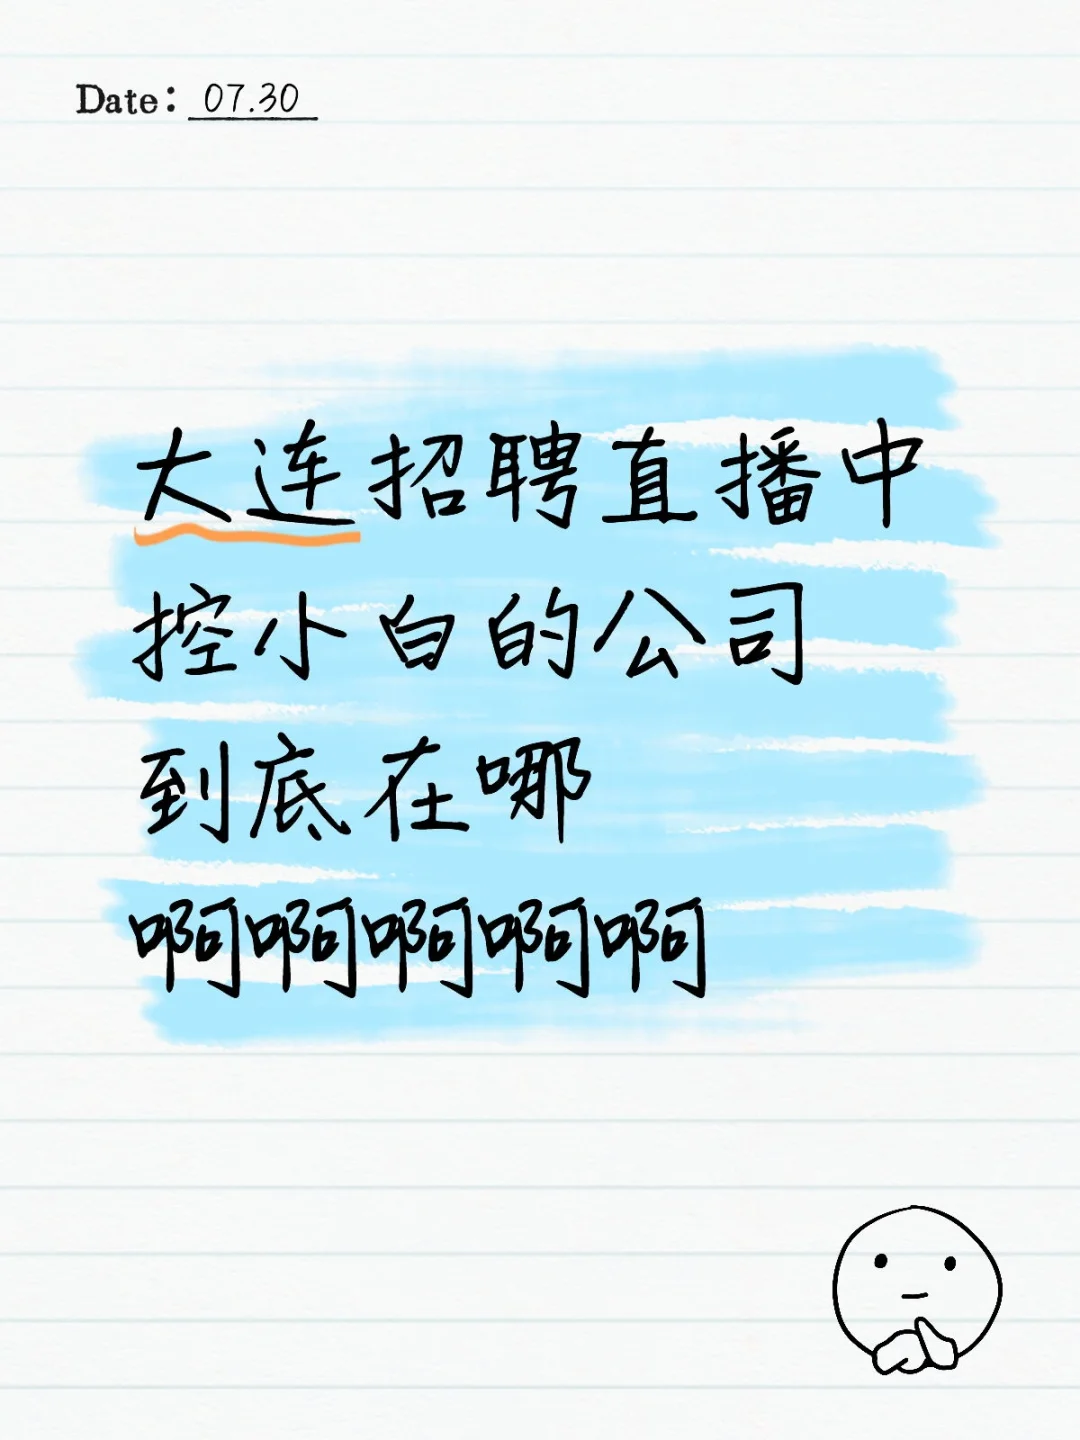 Date: 07.30
大连招聘直播中
控小白的公司
到底在哪
啊啊啊啊啊